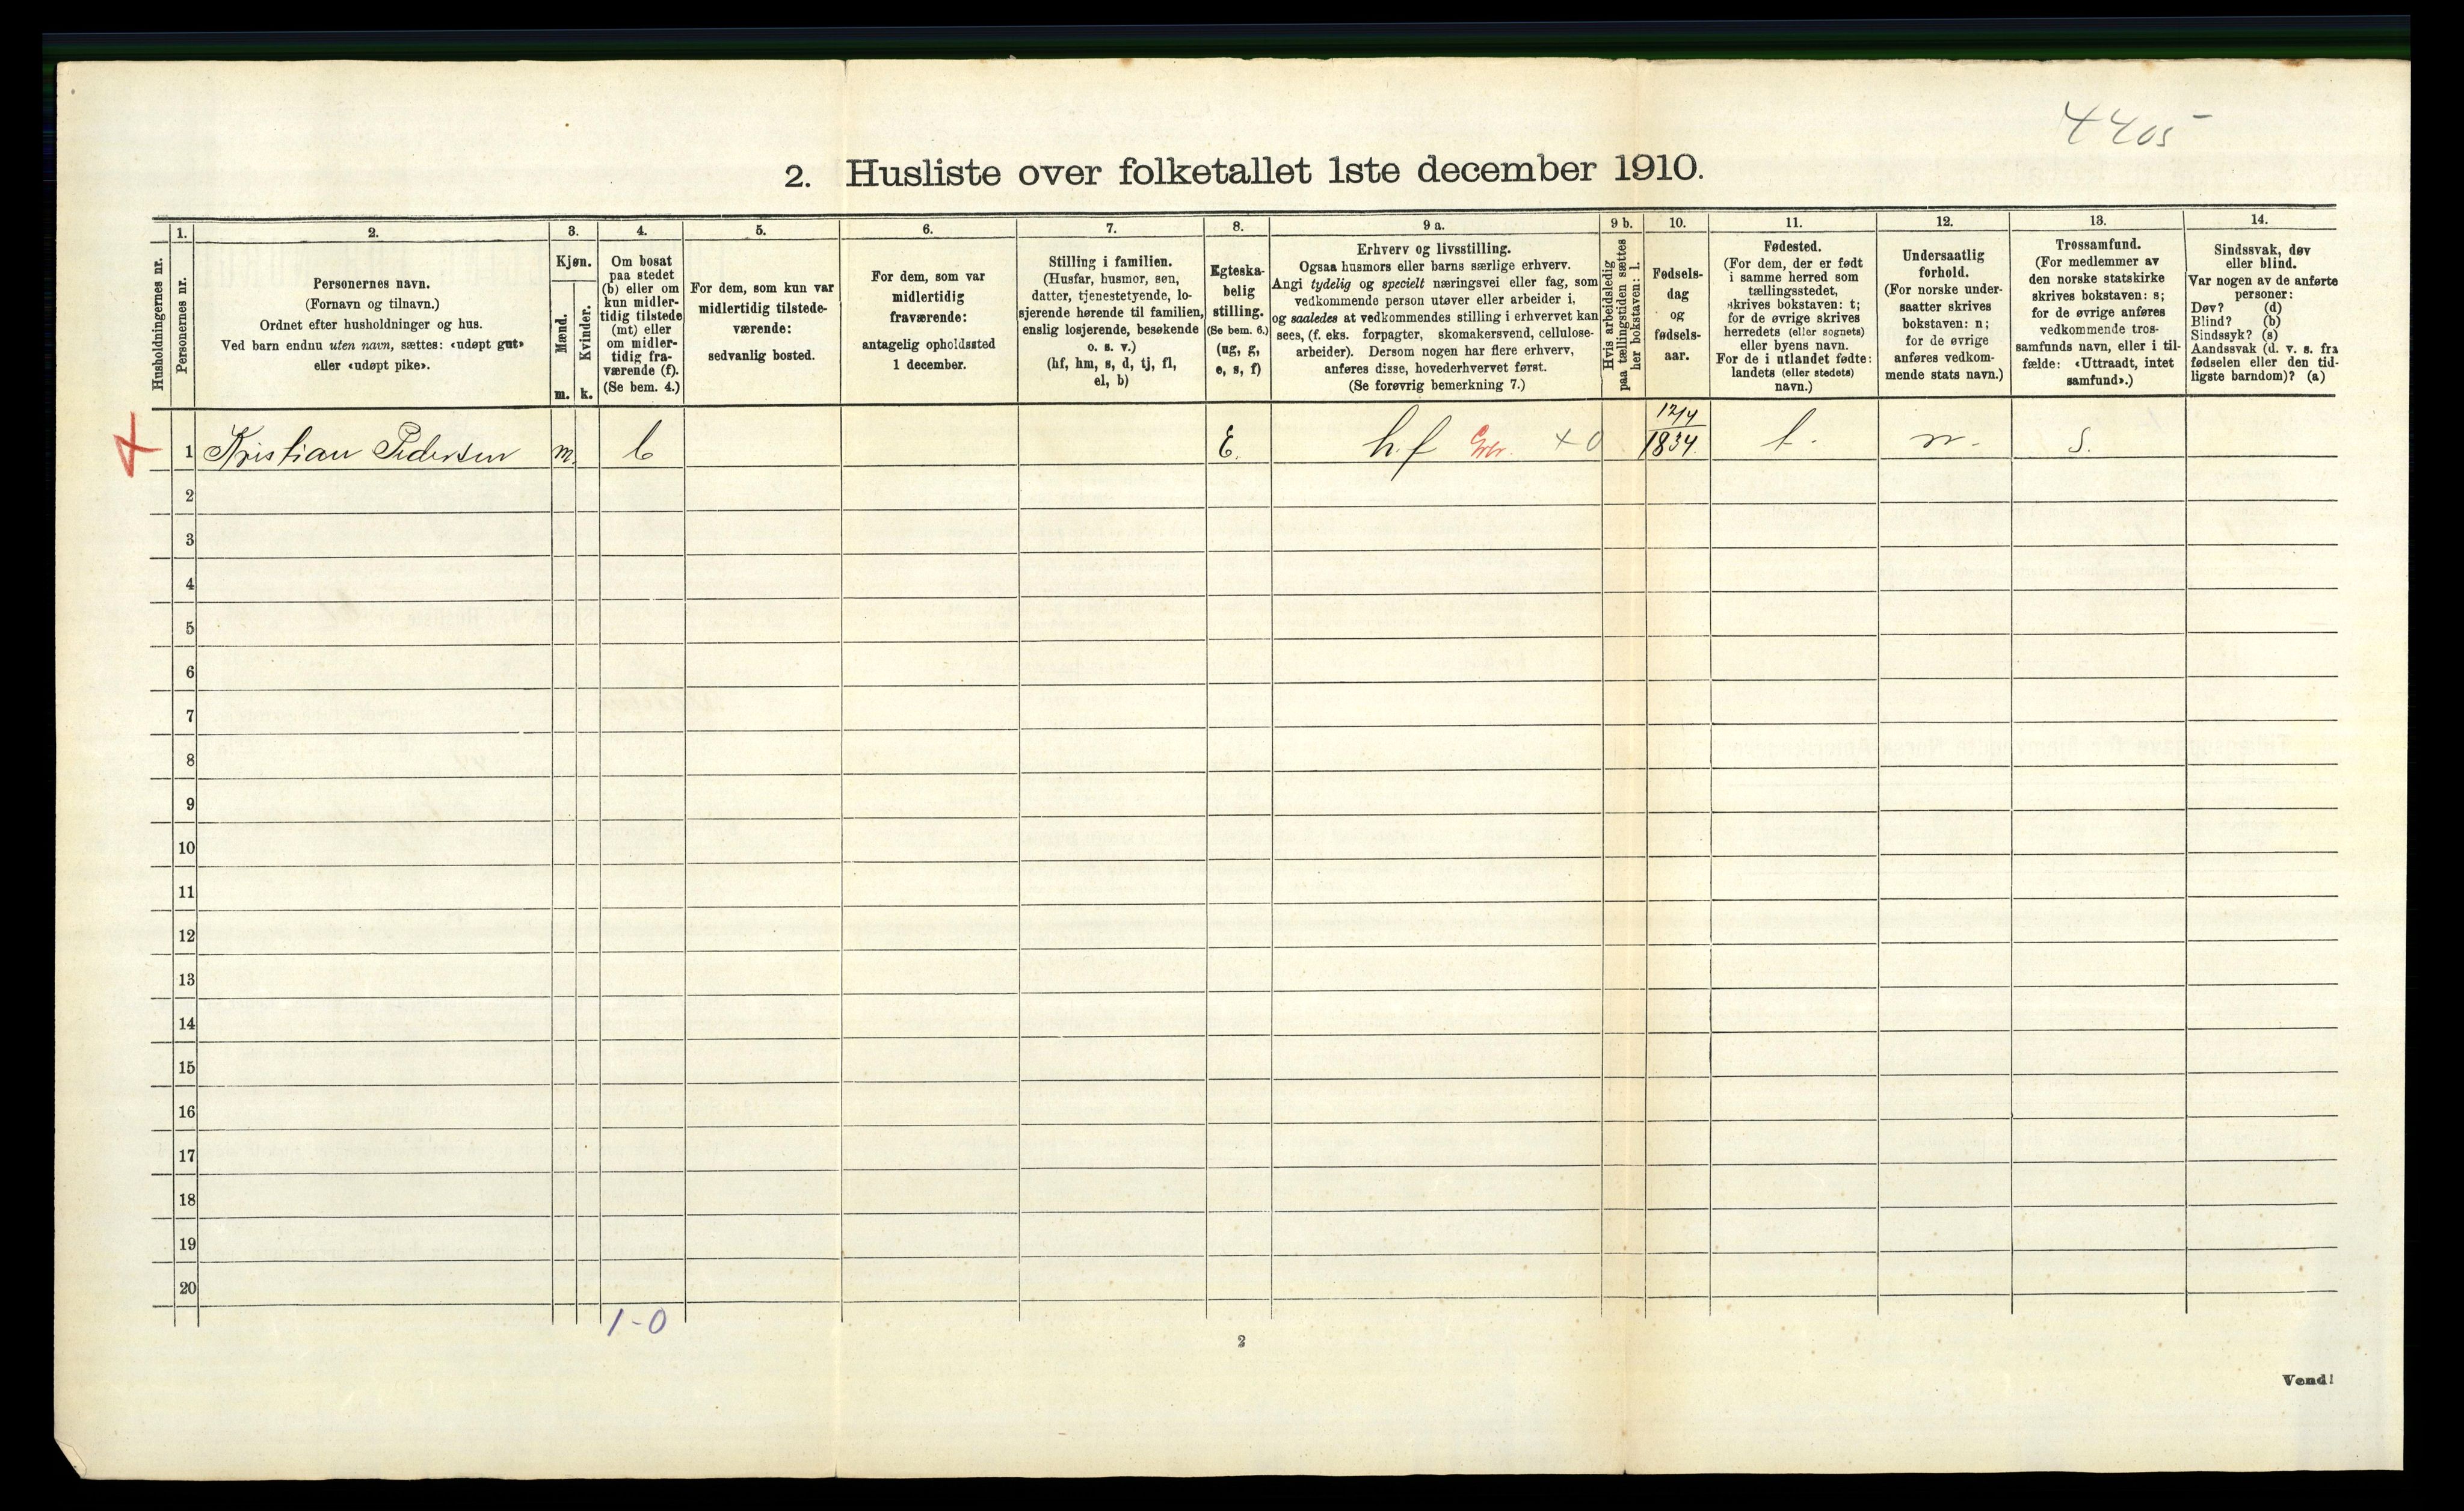 4405
2. Husliste over folketallet 1ste december 1910.
Husholdningernes nr.
1.
Personernes nr.
2.
Personernes navn.
(Fornavn og tilnavn.)
Ordnet efter husholdninger og hus.
Ved barn endnu uten navn, sættes: «udøpt gut»
eller «udøpt pike».
3.
Kjøn.
Mænd.
Kvinder.
m. k.
4.
Om bosat
paa stedet
(b) eller om
kun midler-
tidig tilstede
(mt) eller
om midler-
tidig fra-
værende (f).
(Se bem. 4.)
5.
For dem, som kun var
midlertidig tilstede-
værende:
sedvanlig bosted.
6.
For dem, som var
midlertidig
fraværende:
antagelig opholdssted
1 december.
7.
Stilling i familien.
(Husfar, husmor, søn,
datter, tjenestetyende, lo-
sjerende hørende til familien,
enslig losjerende, besøkende
o. s. v.)
(hf, hm, s, d, tj, fl,
el, b)
8.
Egteska-
belig
stilling.
(Se bem. 6.)
(ug, g,
e, s, f)
9 a.
Erhverv og livsstilling.
Ogsaa husmors eller barns særlige erhverv.
Angi tydelig og specielt næringsvei eller fag, som
vedkommende person utøver eller arbeider i,
og saaledes at vedkommendes stilling i erhvervet kan
sees, (f. eks. forpagter, skomakersvend, cellulose-
arbeider). Dersom nogen har flere erhverv,
anføres disse, hovederhvervet først.
(Se forøvrig bemerkning 7.)
9 b.
Hvis arbeidsledig
paa tællingstiden sættes
her bokstaven: l.
10.
Fødsels-
dag
og
fødsels-
aar.
11.
Fødested.
(For dem, der er født
i samme herred som
tællingsstedet,
skrives bokstaven: t;
for de øvrige skrives
herredets (eller sognets)
eller byens navn.
For de i utlandet fødte:
landets (eller stedets)
navn.)
12.
Undersaatlig
forhold.
(For norske under-
saatter skrives
bokstaven: n;
for de øvrige
anføres vedkom-
mende stats navn.)
13.
Trossamfund.
(For medlemmer av
den norske statskirke
skrives bokstaven: s;
for de øvrige anføres
vedkommende tros-
samfunds navn, eller i til-
fælde: «Uttraadt, intet
samfund».)
14.
Sindssvak, døv
eller blind.
Var nogen av de anførte
personer:
Døv? (d)
Blind? (b)
Sindssyk? (s)
Aandssvak (d. v. s. fra
fødselen eller den tid-
ligste barndom)? (a)
1 Kristian Pedersen m. b E. h.f x 0 12/4 1834. t. n. S.
2
3
4
5
6
7
8
9
10
11
12
13
14
15
16
17
18
19
20
1-0
2
Vend!